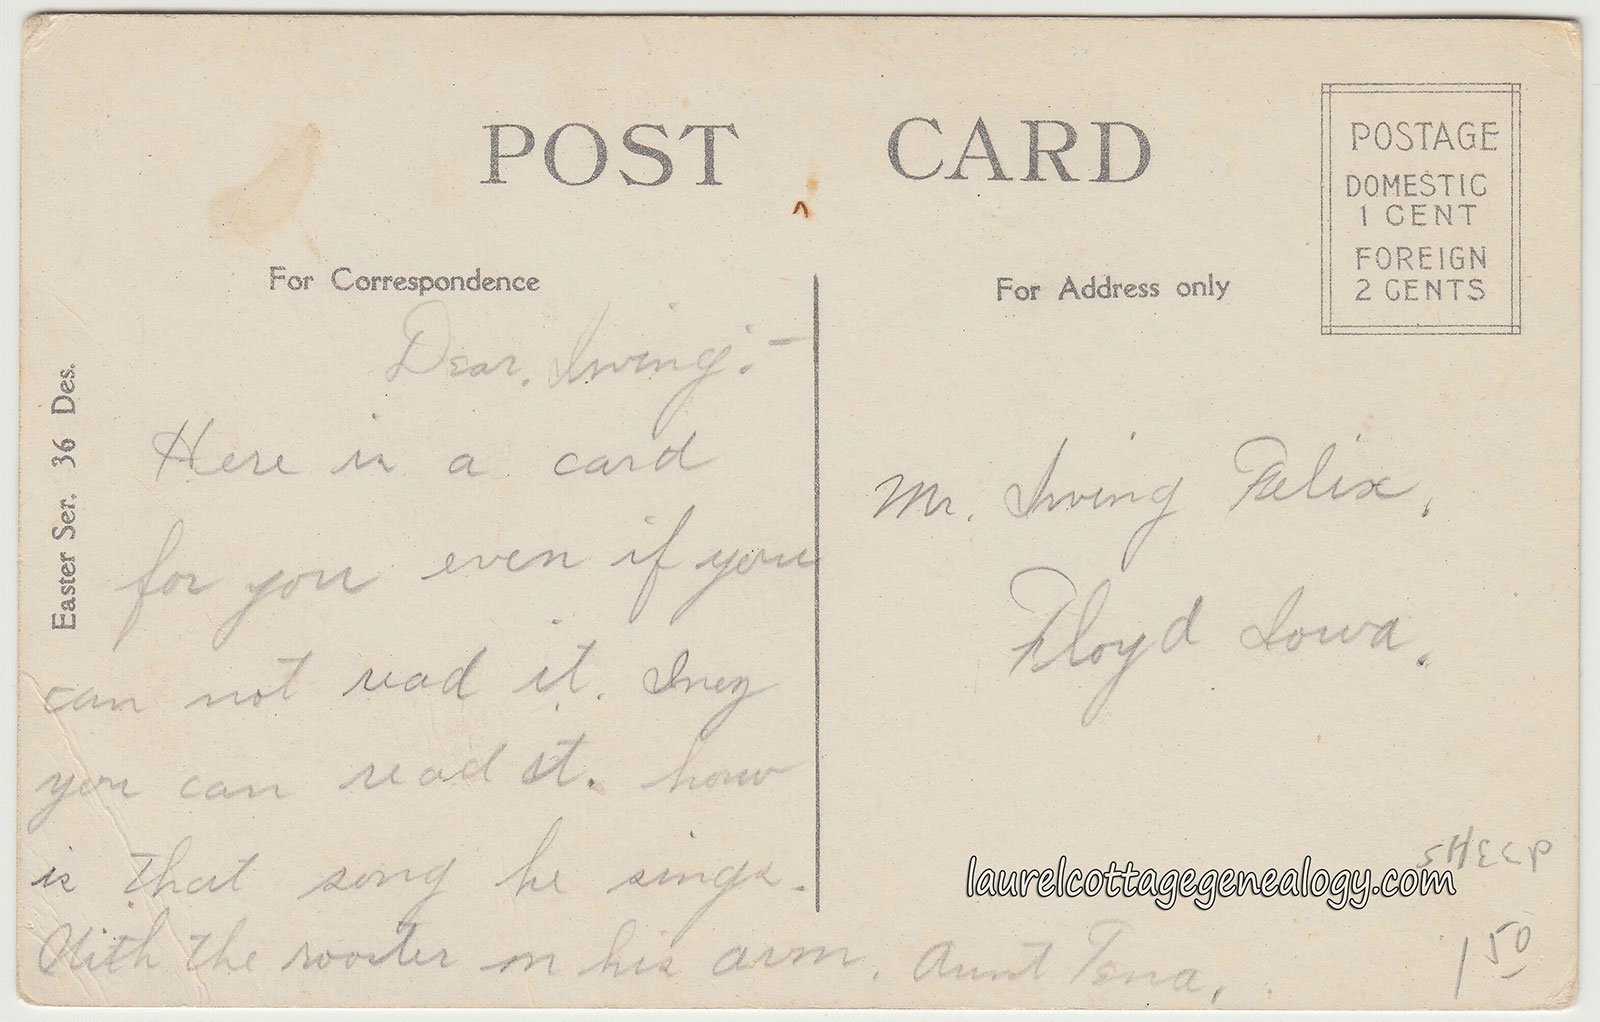 POST CARD
POSTAGE
DOMESTIC
1 CENT
FOREIGN
2 CENTS
For Correspondence
For Address only
Easter Ser. 36 Des.
Dear, Irving:-
Here is a card
for you even if you
can not read it. Inez
you can read it. how
is that song he sings.
With the rooster on his arm. Aunt Tena.
Mr. Irving Felix,
Floyd Iowa.
laurelcottagegenealogy.com
SHEEP
1 50